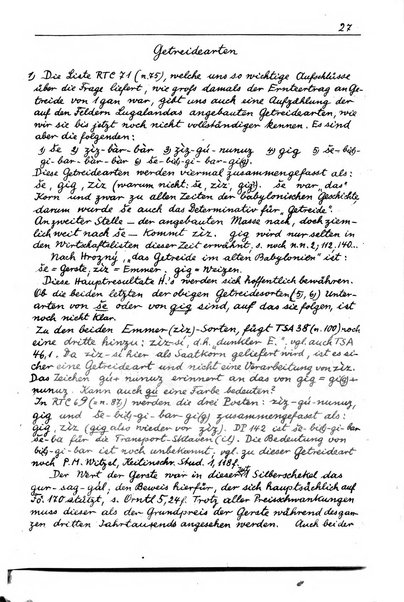 27
Getreidearten
1) Die Liste RTC 71 (n.75), welche uns so wichtige Aufschlüsse
über die Frage liefert, wie groß damals der Ernteertrag an Ge-
treide von 1 gan war, gibt uns auch eine Aufzählung der
auf den Feldern Lugalandas angebauten Getreidearten, wie
wir sie bis jetzt noch nicht vollständiger kennen. Es sind
aber die folgenden:
1) še 2) zíz-bàr-bàr 3) zíz-gú-nunuz 4) gig 5) še-biṭ-
gi-bar-bàr-bàr 6) še-biṭ-gi-bar-gi(g).
Diese Getreidearten werden viermal zusammengefaßt als:
še, gig, zíz (warum nicht: še, zíz, gi(g). še war "das"
Korn und zwar zu allen Zeiten der babylonischen Geschichte
darum wurde še auch das Determinativ für "Getreide".
An zweiter Stelle - der angebauten Masse nach, doch ziem-
lich weit nach še - kommt zíz. gig wird nur selten in
den Wirtschaftslisten dieser Zeit erwähnt, s. noch n.n. 2, 112, 140...
Nach Hrozný "das Getreide im alten Babylonien" ist:
še = Gerste, zíz = Emmer, gig = Weizen.
Diese Hauptresultate H.'s werden sich hoffentlich bewähren.
Ob die beiden letzten der obigen Getreidesorten (5), 6) Unter-
arten von še oder von gig sind, auf das sie folgen, ist
noch nicht klar.
Zu den beiden Emmer (zíz)-Sorten, fügt TSA 38 (n.100) noch
eine dritte hinzu: zíz-si, d.h. "dunkler E.", vgl. auch TSA
46,1. Da zíz-si hier als Saatkorn geliefert wird, ist es si-
cher eine Getreideart und nicht eine Verarbeitung von zíz.
Das Zeichen gú + nunuz erinnert an das von gig = gi(g)+
nunuz. Kann auch gú eine Farbe bedeuten?
In RTC 69 (= n.87) werden die drei Posten: zíz-gú-nunuz,
gig und še-biṭ-gi-bar-gi(g) zusammengefaßt als:
zíz, gig (gig also wieder vor zíz). DP 142 ist še-biṭ-gi-bar
še-ba für die Transport-Sklaven (íl). Die Bedeutung von
biṭ-gi-bar ist noch unbekannt, vgl. zu dieser Getreideart
noch P. M. Witzel, Keilinschr. Stud. 1, 118f.
Der Wert der Gerste war in dieser Zeit 1 Silberschekel das
gur-sag-gál, den Beweis hierfür, der sich hauptsächlich auf
Fö. 170 stützt, s. Orntl 5,24f. Trotz aller Preisschwankungen
muss dieser als der Grundpreis der Gerste während des gan-
zen dritten Jahrtausends angesehen werden. Auch bei der